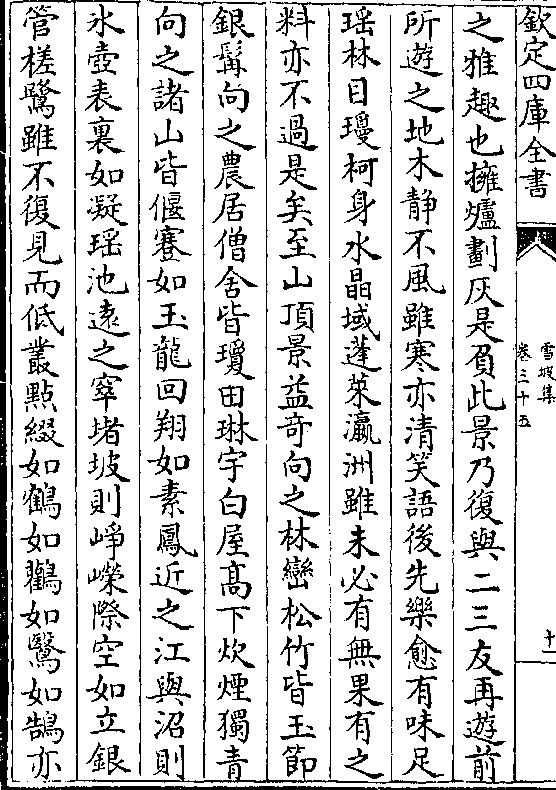 欽定四庫全書
雪坡集
卷三十五
十一
之雅趣也擁爐劃灰是負此景乃復與二三友再遊前
所遊之地木静不風雖寒亦清笑語後先樂愈有味足
瑶林目瓊柯身水晶域蓬萊瀛洲雖未必有無果有之
料亦不過是矣至山頂景益奇向之林巒松竹皆玉節
銀髯向之農居僧舍皆瓊田琳宇白屋髙下炊煙獨青
向之諸山皆偃蹇如玉龍回翔如素鳳近之江與沼則
氷壺表裏如凝瑶池逺之窣堵坡則崢嶸際空如立銀
管槎鷺雖不復見而低叢點綴如鶴如鸛如鷖如鵠亦